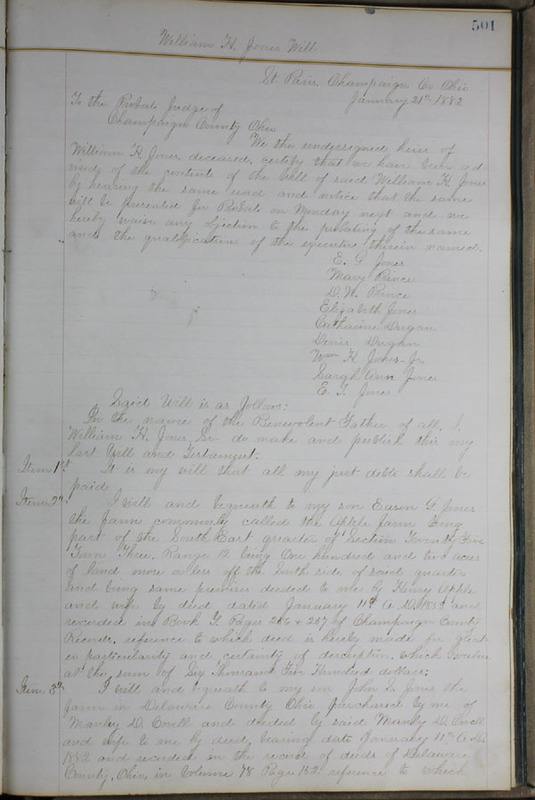 501
William H. Jones Will
St Paris, Champaign Co Ohio
January 21st 1882
To the Probate Judge of
Champaign County Ohio
We the undersigned heirs of
William H Jones deceased, certify that we have been ad-
vised of the contents of the Will of said William H Jones
by hearing the same read and notice that the same
will be presented for Probate on Monday next and we
hereby waive any objection to the probating of the same
and the qualifications of the executor therein named.
E. G Jones
Mary Prince
D. W. Prince
Elizabeth Jones
Catharine Dugan
Denis Dugan
Wm H Jones Jr
Sarah Ann Jones
E. T. Jones
Said Will is as follows:
In the name of the Benevolent Father of all, I,
William H. Jones Sr do make and publish this my
last Will and Testament.
Item 1st. It is my will that all my just debts shall be
paid
Item 2nd. I will and bequeath to my son Eason G Jones
the farm commonly called the Apple farm being
part of the South East quarter of Section Twenty Five
Town Three, Range 12 being One hundred and two acres
of land more or less off the South side of said quarter
and being same premises deeded to me by Henry Apple
and wife by deed dated January 11th A.D. and
recorded in Book Pages 266 & 267 of Champaign County
Records, reference to which deed is hereby made for great
er particularity and certainty of description. which
at the sum of Six Thousand Five Hundred dollars;
Item 3rd. I will and bequeath to my son John S. Jones the
farm in Delaware County Ohio purchased by me of
Manley D. Covell and deeded by said Manley D. Covell
and wife to me by deed, bearing date January 11th A.D.
1882 and recorded in the record of deeds of Delaware
County, Ohio, in Volume 78 Page 152 reference to which